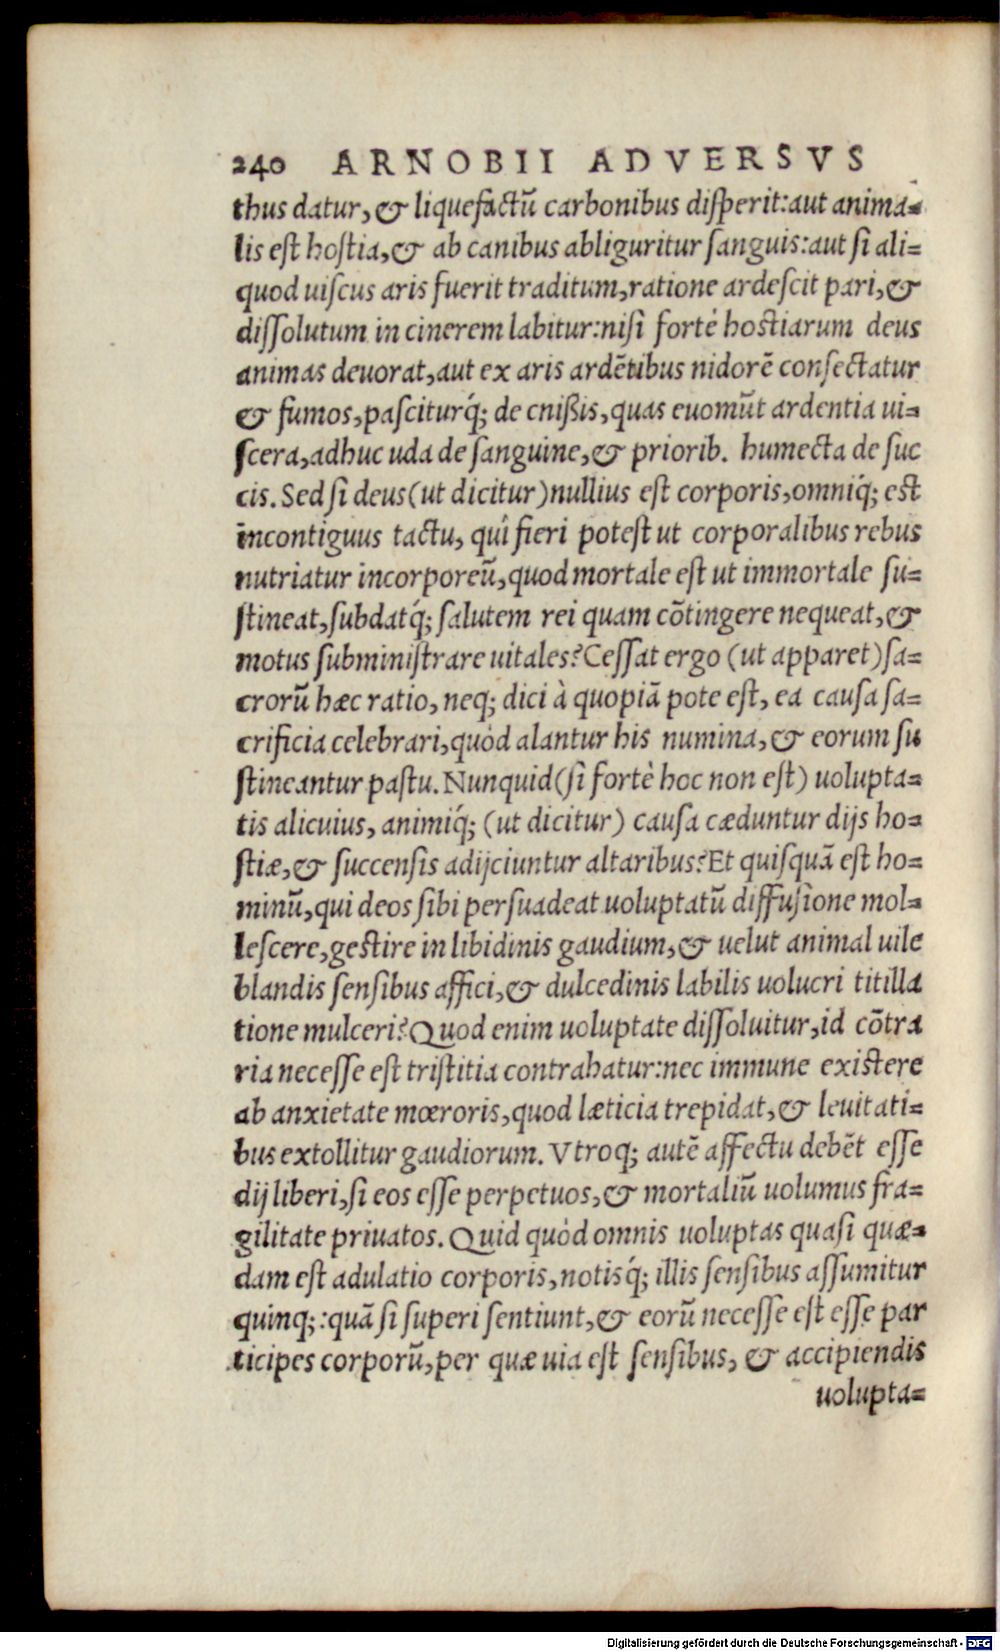 240 ARNOBII ADVERSVS
thus datur, & liquefactũ carbonibus diſperit: aut anima=
lis eſt hoſtia, & ab canibus abliguritur ſanguis: aut ſi ali=
quod uiſcus aris fuerit traditum, ratione ardeſcit pari, &
diſſolutum in cinerem labitur: niſi fortè hoſtiarum deus
animas deuorat, aut ex aris ardẽtibus nidorẽ conſectatur
& fumos, paſciturq́; de cnißis, quas euomũt ardentia ui=
ſcera, adhuc uda de ſanguine, & priorib. humecta de ſuc
cis. Sed ſi deus (ut dicitur) nullius eſt corporis, omniq́; eſt
incontiguus tactu, quî fieri poteſt ut corporalibus rebus
nutriatur incorporeũ, quod mortale eſt ut immortale ſu=
ſtineat, ſubdatq́; ſalutem rei quam cõtingere nequeat, &
motus ſubminiſtrare uitales? Ceſſat ergo (ut apparet) ſa=
crorũ hæc ratio, neq; dici à quopiã pote eſt, ea cauſa ſa=
crificia celebrari, quòd alantur his numina, & eorum ſu
ſtineantur paſtu. Nunquid (ſi fortè hoc non eſt) uolupta=
tis alicuius, animiq́; (ut dicitur) cauſa cæduntur dijs ho=
ſtiæ, & ſuccenſis adijciuntur altaribus? Et quiſquã eſt ho=
minũ, qui deos ſibi perſuadeat uoluptatũ diffuſione mol=
leſcere, geſtire in libidinis gaudium, & uelut animal uile
blandis ſenſibus affici, & dulcedinis labilis uolucri titilla
tione mulceri? Quod enim uoluptate diſſoluitur, id cõtra
ria neceſſe eſt triſtitia contrahatur: nec immune exiſtere
ab anxietate mœroris, quod læticia trepidat, & leuitati=
bus extollitur gaudiorum. Vtroq; autẽ affectu debẽt eſſe
dij liberi, ſi eos eſſe perpetuos, & mortaliũ uolumus fra=
gilitate priuatos. Quid quòd omnis uoluptas quaſi quæ=
dam eſt adulatio corporis, notisq́; illis ſenſibus aſſumitur
quinq;: quã ſi ſuperi ſentiunt, & eorũ neceſſe eſt eſſe par
ticipes corporũ, per quæ uia eſt ſenſibus, & accipiendis
uolupta=
Digitalisierung gefördert durch die Deutsche Forschungsgemeinschaft - DFG